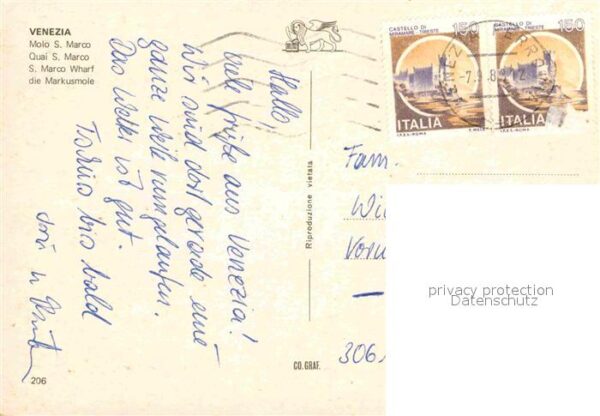 VENEZIA
Molo S. Marco
Quai S. Marco
S. Marco Wharf
die Markusmole
Hallo
viele Grüße aus Venezia!
Wir sind dort gerade eine
ganze Weile rumgelaufen.
Das Wetter ist gut.
Tschüß bis bald
206
Riproduzione vietata
CO. GRAF.
CASTELLO DI
MIRAMARE TRIESTE
150
ITALIA
I.P.Z.S.-ROMA
CASTELLO DI
MIRAMARE TRIESTE
150
ITALIA
I.P.Z.S.-ROMA
Fam.
306
privacy protection
Datenschutz